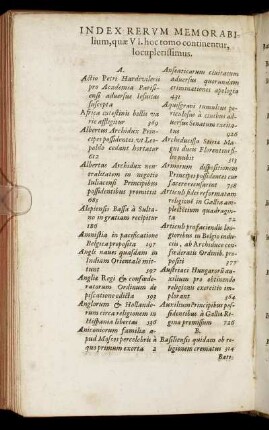 INDEX RERVM MEMORABI-
lium, quæ VI. hoc tomo continentur,
locupletissimus.
A.
Actio Petri Hardivalerii
pro Academia Parisi-
ensi adversus Iesuitas
suscepta
Africa intestinis bellis va
rie affligitur 369
Albertus Archidux Prin-
cipes possidentes ut Leo-
poldo cedant hortatur
612
Albertus Archidux neu-
tralitatem in negotio
Iuliacensi Principibus
possidentibus promittit
682
Alepiensis Bassa à Sulta-
no in gratiam recipitur
120
Amnistia in pacificatione
Belgica proposita 197
Angli naves quasdam in
Indiam Orientalē mit-
tunt 397
Anglia Regi & confœde-
ratorum Ordinum de
piscatione edicta 393
Anglorum & Hollando-
rum circa religionem in
Hispania libertas 396
Aniconiorum familia a-
pud Moscos percelebris à
quo primum exorta 2
Auseaticarum civitatum
adversus quorundam
criminationes apologia
431
Aquisgrani tumultus pe-
riculosus à civibus ad-
versus Senatum excita-
tus
926
Archiducissa Seren. Ma-
gno duci Florentiæ de-
spondetur 313
Armorum dispositionem
Principes possidentes cur
facere recusarint 738
Articuli fœderis reformatam
religionē in Gallia am-
plectentium quadragin-
ta 22
Articuli pro faciendis lon-
gioribus in Belgio induci-
is, ab Archiduce con-
fœderatis Ordinib. pro-
positi 277
Austriaci Hungaros au-
xilium pro obtinendo
religionis exercitio im-
plorant 364
Auxilium Principibus pos-
sidentibus à Galliæ Re-
gina promissum 726
B.
Basiliensis quidam ob re-
ligionem crematus 314
Bata-